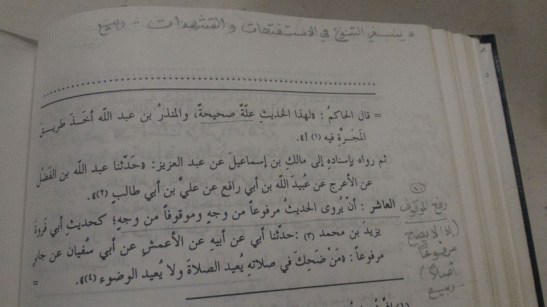 ينبغي التنوع في الاستفتاحات و التشهدات
= قال الحاكم : «لهذا الحديثِ عِلّةٌ صحيحةٌ، والمنذرُ بن عبد الله أخَـذَ طريـقَ
المَجَرَّةِ فيه (١)».
ثم رواه بإسناده إلى مالكِ بن إسماعيلَ عن عبد العزيز: «حَدّثنا عبد الله بن الفَضْل
عن الأعرج عن عُبيدَ الله بن أبي رافع عن عليِّ بن أبي طالبٍ (٢)».
العاشر : أنْ يُروى الحديثُ مرفوعاً من وجهٍ وموقوفاً من وجهٍ؛ كحديثِ أبي فَروةَ
يزيدَ بن محمد (٣) :حدّثنا أبي عن أبيه عن الأعمشِ عن أبي سُفيان عن جابرٍ
مرفوعاً : «مَنْ ضَحِكَ في صلاتِه يُعيد الصلاةَ ولا يُعيد الوضوء (٤)». =
رفع الموقوف
مرفوعاً